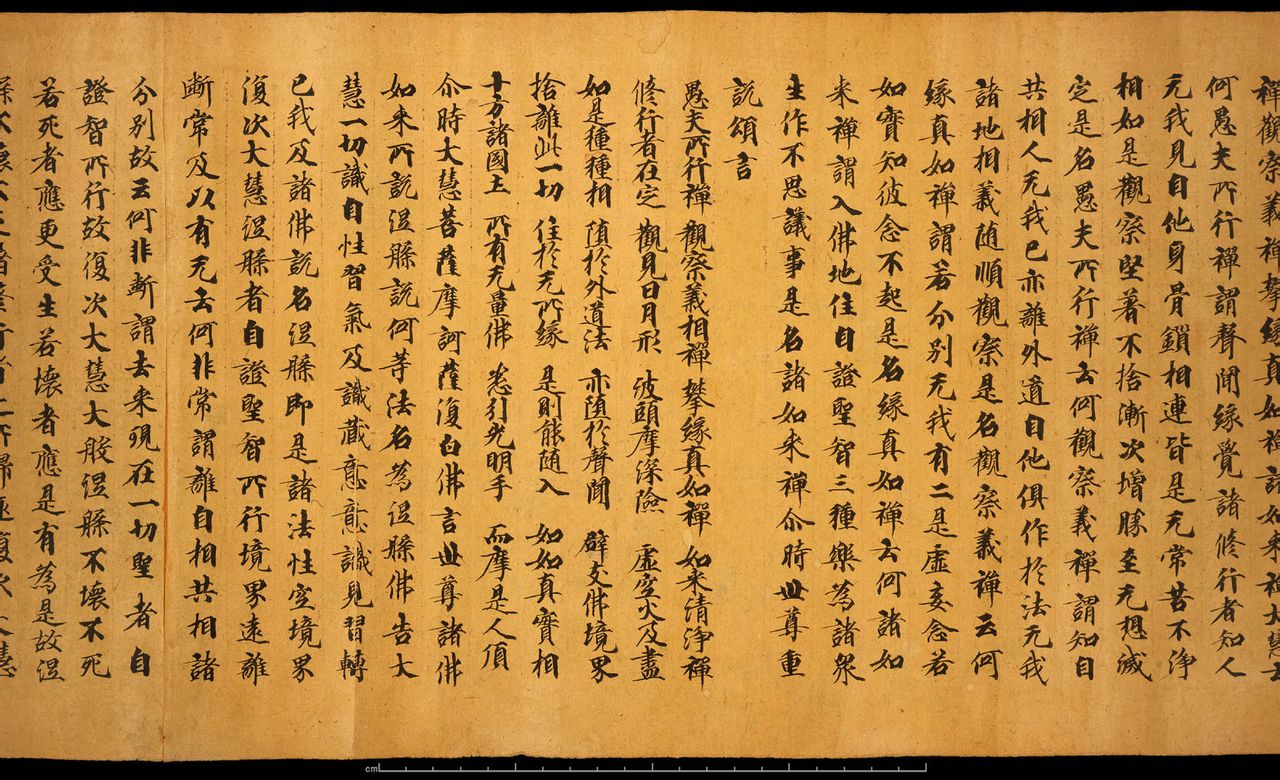 禪觀察義禪攀緣真如禪諸如來禪大慧云
何愚夫所行禪謂聲聞緣覺諸修行者知人
无我見自他身骨鎖相連皆是无常苦不淨
相如是觀察堅著不捨漸次增勝至无想滅
定是名愚夫所行禪云何觀察義禪謂知自
共相人无我已亦離外道自他俱作於法无我
諸地相義随順觀察是名觀察義禪云何
緣真如禪謂若分別无我有二是虛妄念若
如實知彼念不起是名緣真如禪云何諸如
来禪謂入佛地住自證聖智三種樂為諸衆
生作不思議事是名諸如来禪尒時世尊重
說頌言
愚夫所行禪 觀察義相禪 攀緣真如禪 如来清淨禪
修行者在定 觀見日月形 波頭摩深險 虛空火及盡
如是種種相 墮於外道法 亦墮於聲聞 辟支佛境界
捨離此一切 住於无所緣 是則能随入 如如真實相
十方諸國土 所有无量佛 悉引光明手 而摩是人頂
尒時大慧菩薩摩訶薩復白佛言世尊諸佛
如来所說涅槃說何等法名為涅槃佛告大
慧一切識自性習氣及識藏意意識見習轉
已我及諸佛說名涅槃即是諸法性空境界
復次大慧涅槃者自證聖智所行境界遠離
斷常及以有无云何非常謂離自相共相諸
分別故云何非斷謂去来現在一切聖者自
證智所行故復次大慧大般涅槃不壞不死
若死者應更受生若壞者應是有為是故涅